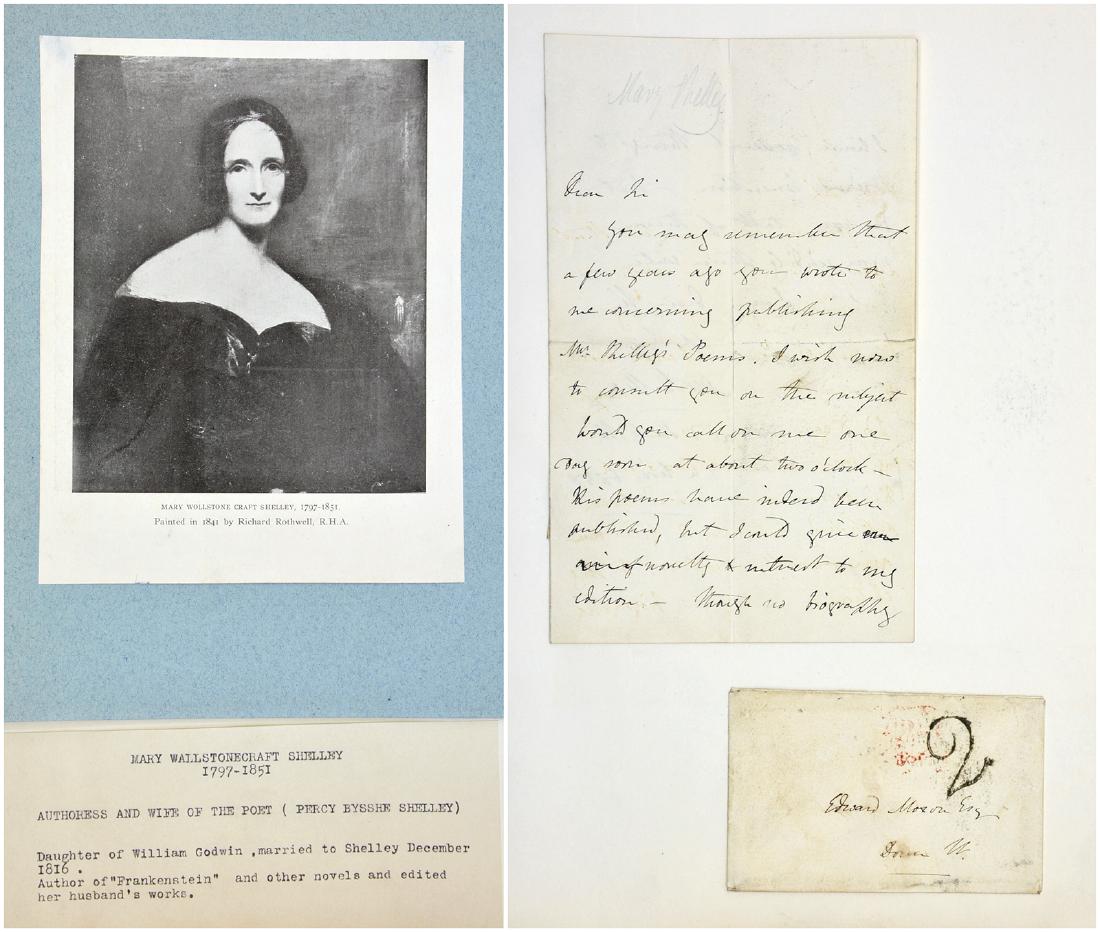 MARY WOLLSTONE CRAFT SHELLEY, 1797-1851.
Painted in 1841 by Richard Rothwell, R.H.A.
MARY WALLSTONECRAFT SHELLEY
1797-1851
AUTHORESS AND WIFE OF THE POET ( PERCY BYSSHE SHELLEY)
Daughter of William Godwin ,married to Shelley December
1816 .
Author of"Frankenstein" and other novels and edited
her husband's works.
Mary Shelley
Dear Sir
You may remember that
a few years ago you wrote to
me concerning publishing
Mr. Shelley's Poems. I wish now
to consult you on the subject
Would you call on me one
day soon at about two o'clock –
His poems have indeed been
published, but I could give
novelty & interest to my
edition – though no biography
2
Edward Moxon Esq
Dover St.